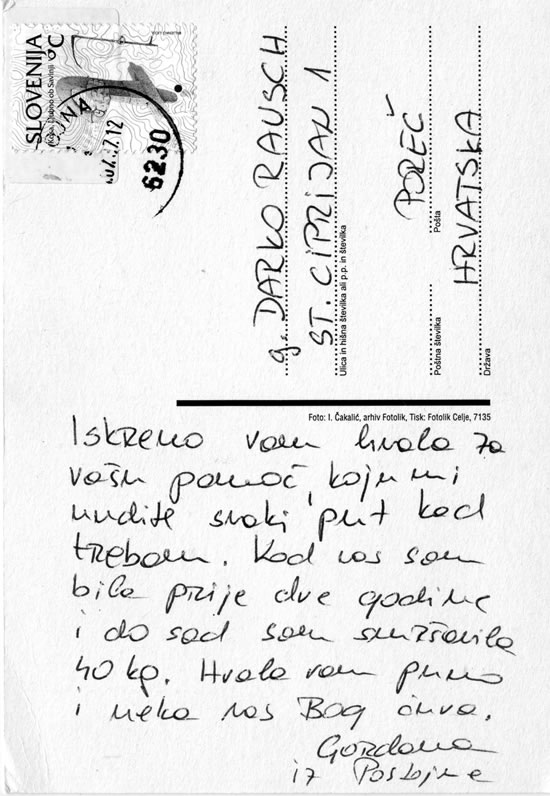 SLOVENIJA
°C
Kopa, Ljubno ob Savinji
OJNA
6230
g. DARKO RAUSCH
ST. CIPRIJAN 1
Ulica in hišna številka ali p.p. in številka
POREČ
Poštna številka
Pošta
HRVATSKA
Država
Foto: I. Čakalić, arhiv Fotolik, Tisk: Fotolik Celje, 7135
Iskreno vam hvala za
vašu pomoć, koju mi
nudite svaki put kad
trebam. Kod vas sam
bila prije dve godine
i do sad sam smršavila
40 kg. Hvala vam puno
i neka vas Bog čuva.
Gordana
iz Postojne